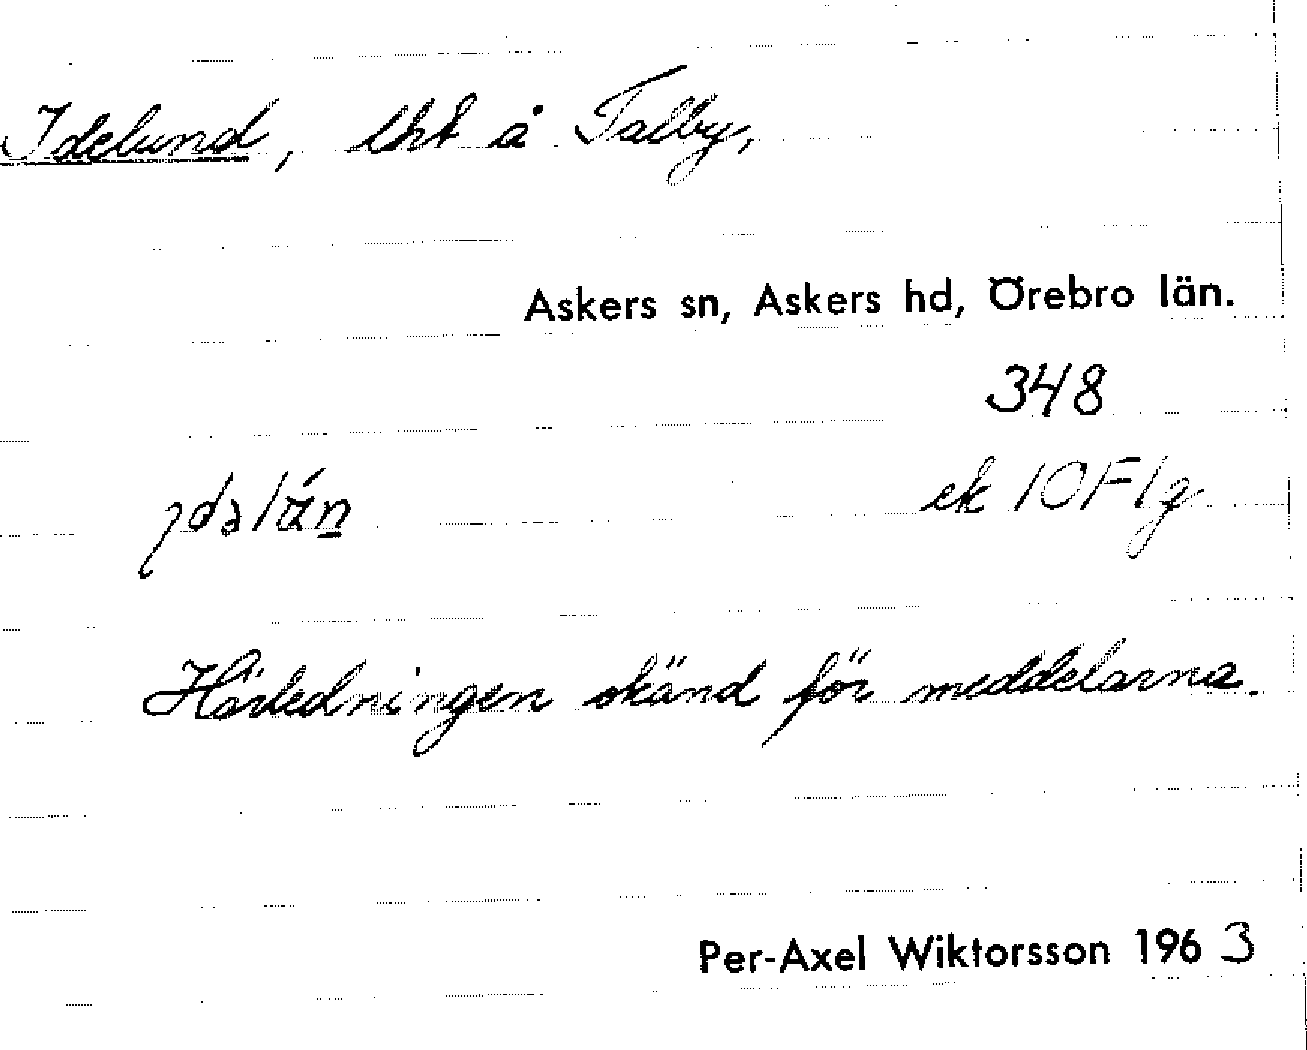 Idelund, lht å Talby,
Askers sn, Askers hd, Örebro län.
348
ek 10F1g
Härledningen okänd för meddelarna.
Per-Axel Wiktorsson 1963